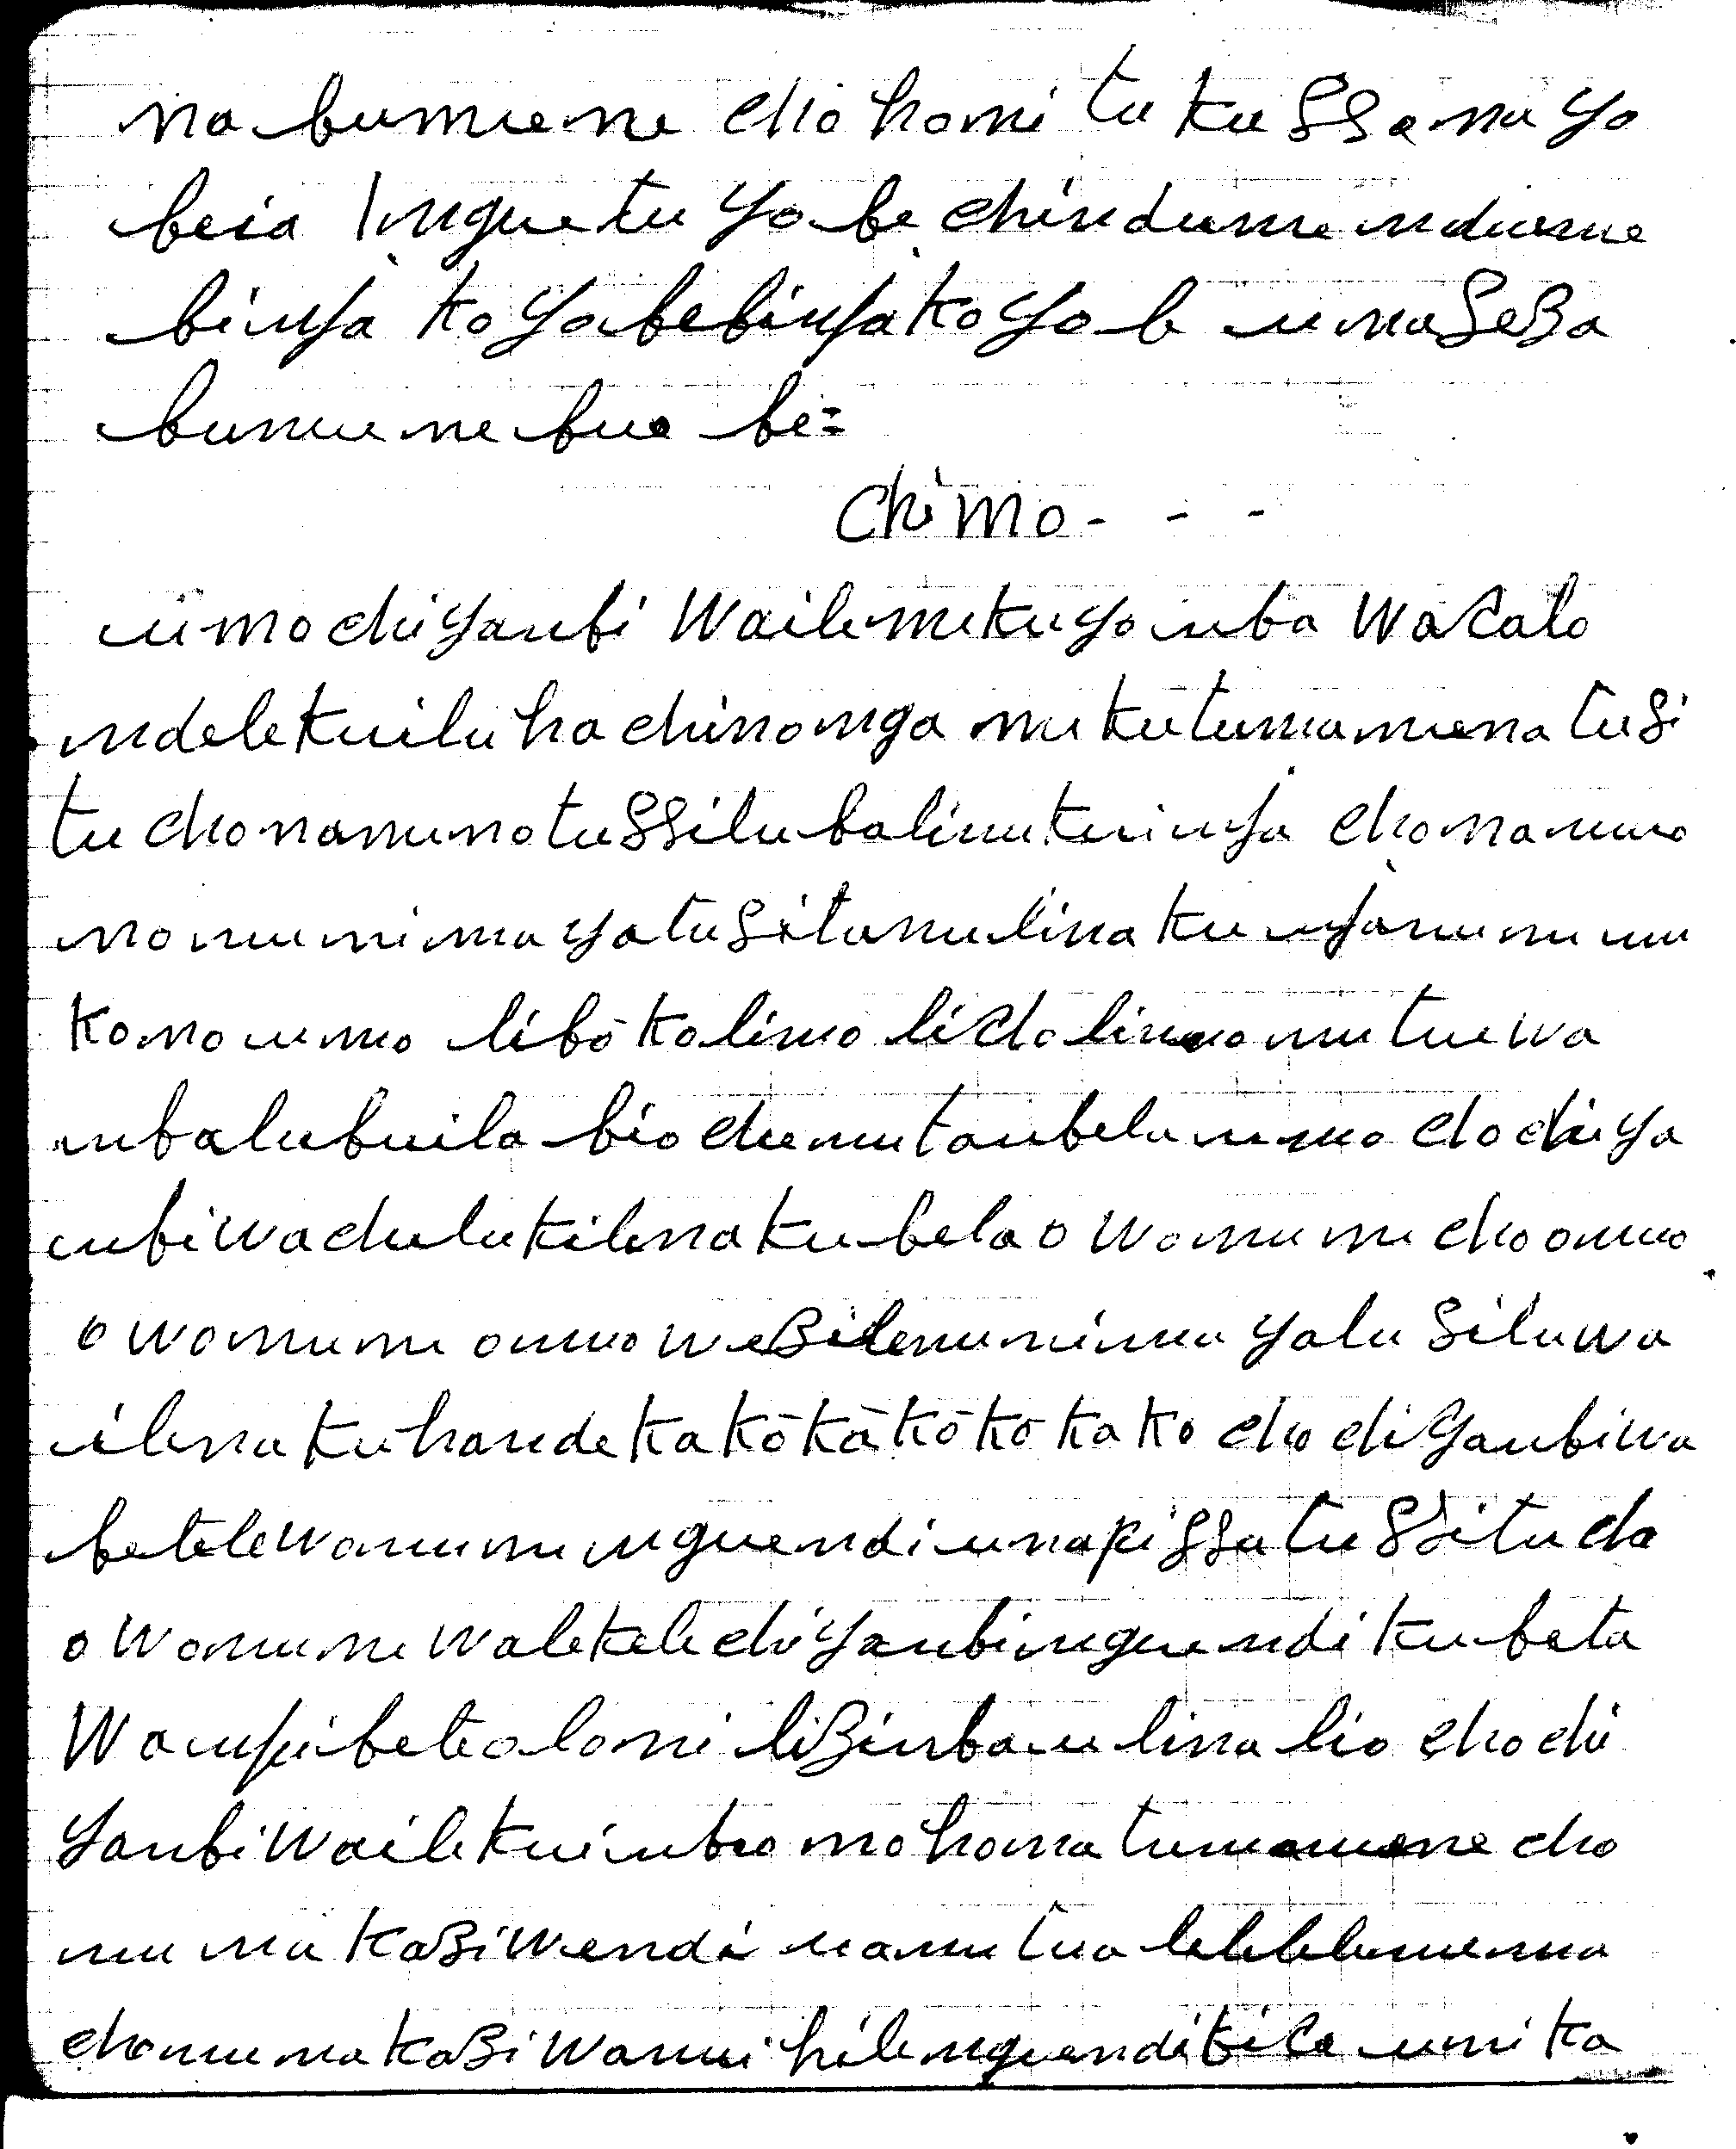 na bumuene cho hamɨ tu ku ssa mu ya
beia lunguetu ya be chindume ndume
binja ko ya be binja ko ya b u ma seza
bumuene bua be=
Chimo - - -
umo chiyanbi Waile mu kuyanba Wacalo
ndele kuilu ha chinanga mu kutumamena tusi
tu cho namuno tussitu balinu kuinja cho namuo
no mu mima ya tusitu mulina ku njamu mu mu
kano umo libo kalimo licho limuo mutue wa
mbalubuilo bio chu mutanbela umo cho chi ya
nbi wachulukilena kubela o wamu mu cho omuo
o wamumu omuo wezile mu mima ya tusitu wa
ilena kuhandeka kō kā kō ko ka ko cho chiyanbi wa
betele wamumu nguendi unapissa tussitu cho
o wamumu walekele chiyanbi nguendi ku beta
Wa mpi bete aloni lizinba u lina lio cho chi
yanbi waile kuimbo na hama tumamene cho
mu ma kazi wendi ua mu tua lelelele muema
cho mu ma kazi wamui hile nguendi bica uni ka